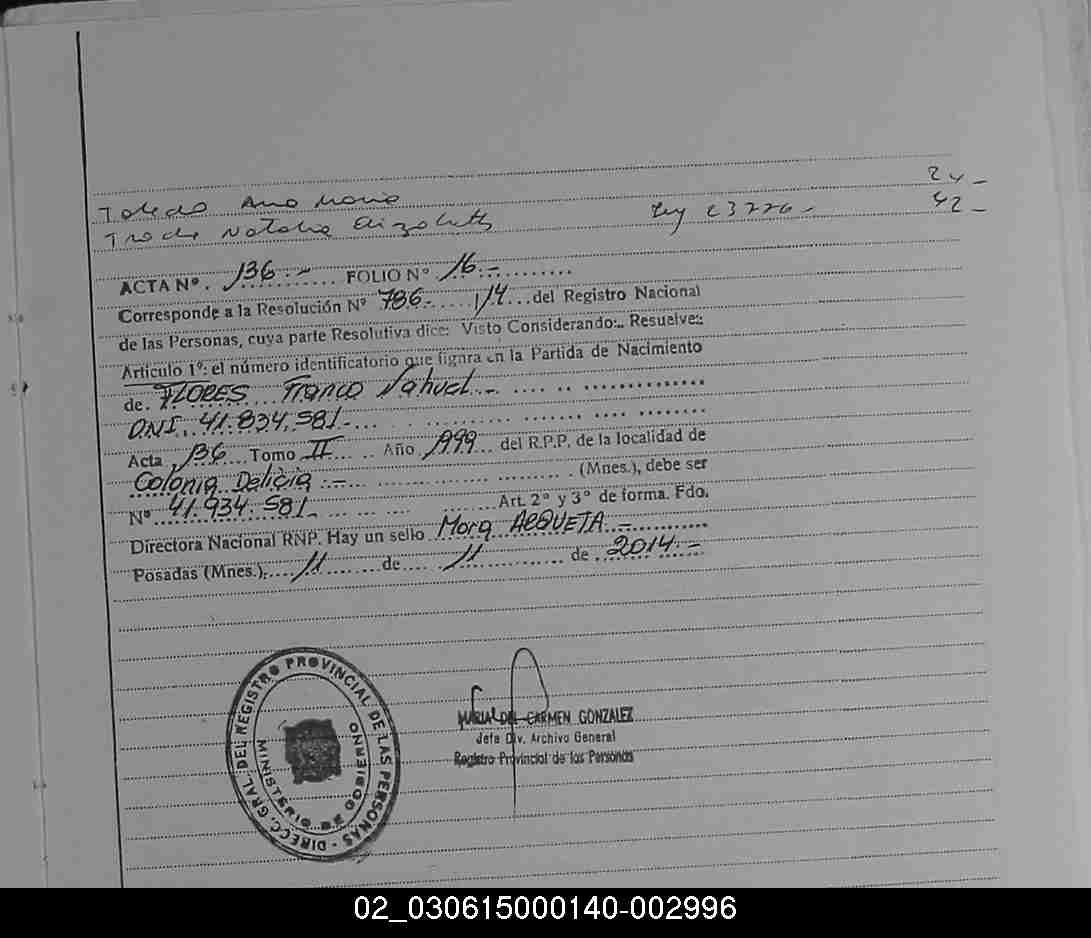 Toledo Ana Maria 24 -
Troche Natalia Elizabeth Ley 23776 - 42 -
ACTA Nº. 136.- FOLIO Nº 16.-
Corresponde a la Resolución Nº 786- /14 del Registro Nacional
de las Personas, cuya parte Resolutiva dice: Visto Considerando: Resuelve:
Artículo 1º: el número identificatorio que figura en la Partida de Nacimiento
de. FLORES Franco Nahuel.-
DNI. 41.834.581.-
Acta 136 Tomo II Año 1999 del R.P.P. de la localidad de
Colonia Delicia.- (Mnes.), debe ser
Nº 41.934.581. Art. 2º y 3º de forma. Fdo.
Directora Nacional RNP. Hay un sello Mora ARQUETA.-
Posadas (Mnes.), 11 de 11 de 2014.-
DIRECC. GRAL. DEL REGISTRO PROVINCIAL DE LAS PERSONAS -
MINISTERIO DE GOBIERNO
MARIA DEL CARMEN GONZALEZ
Jefa Div. Archivo General
Registro Provincial de las Personas
02_030615000140-002996